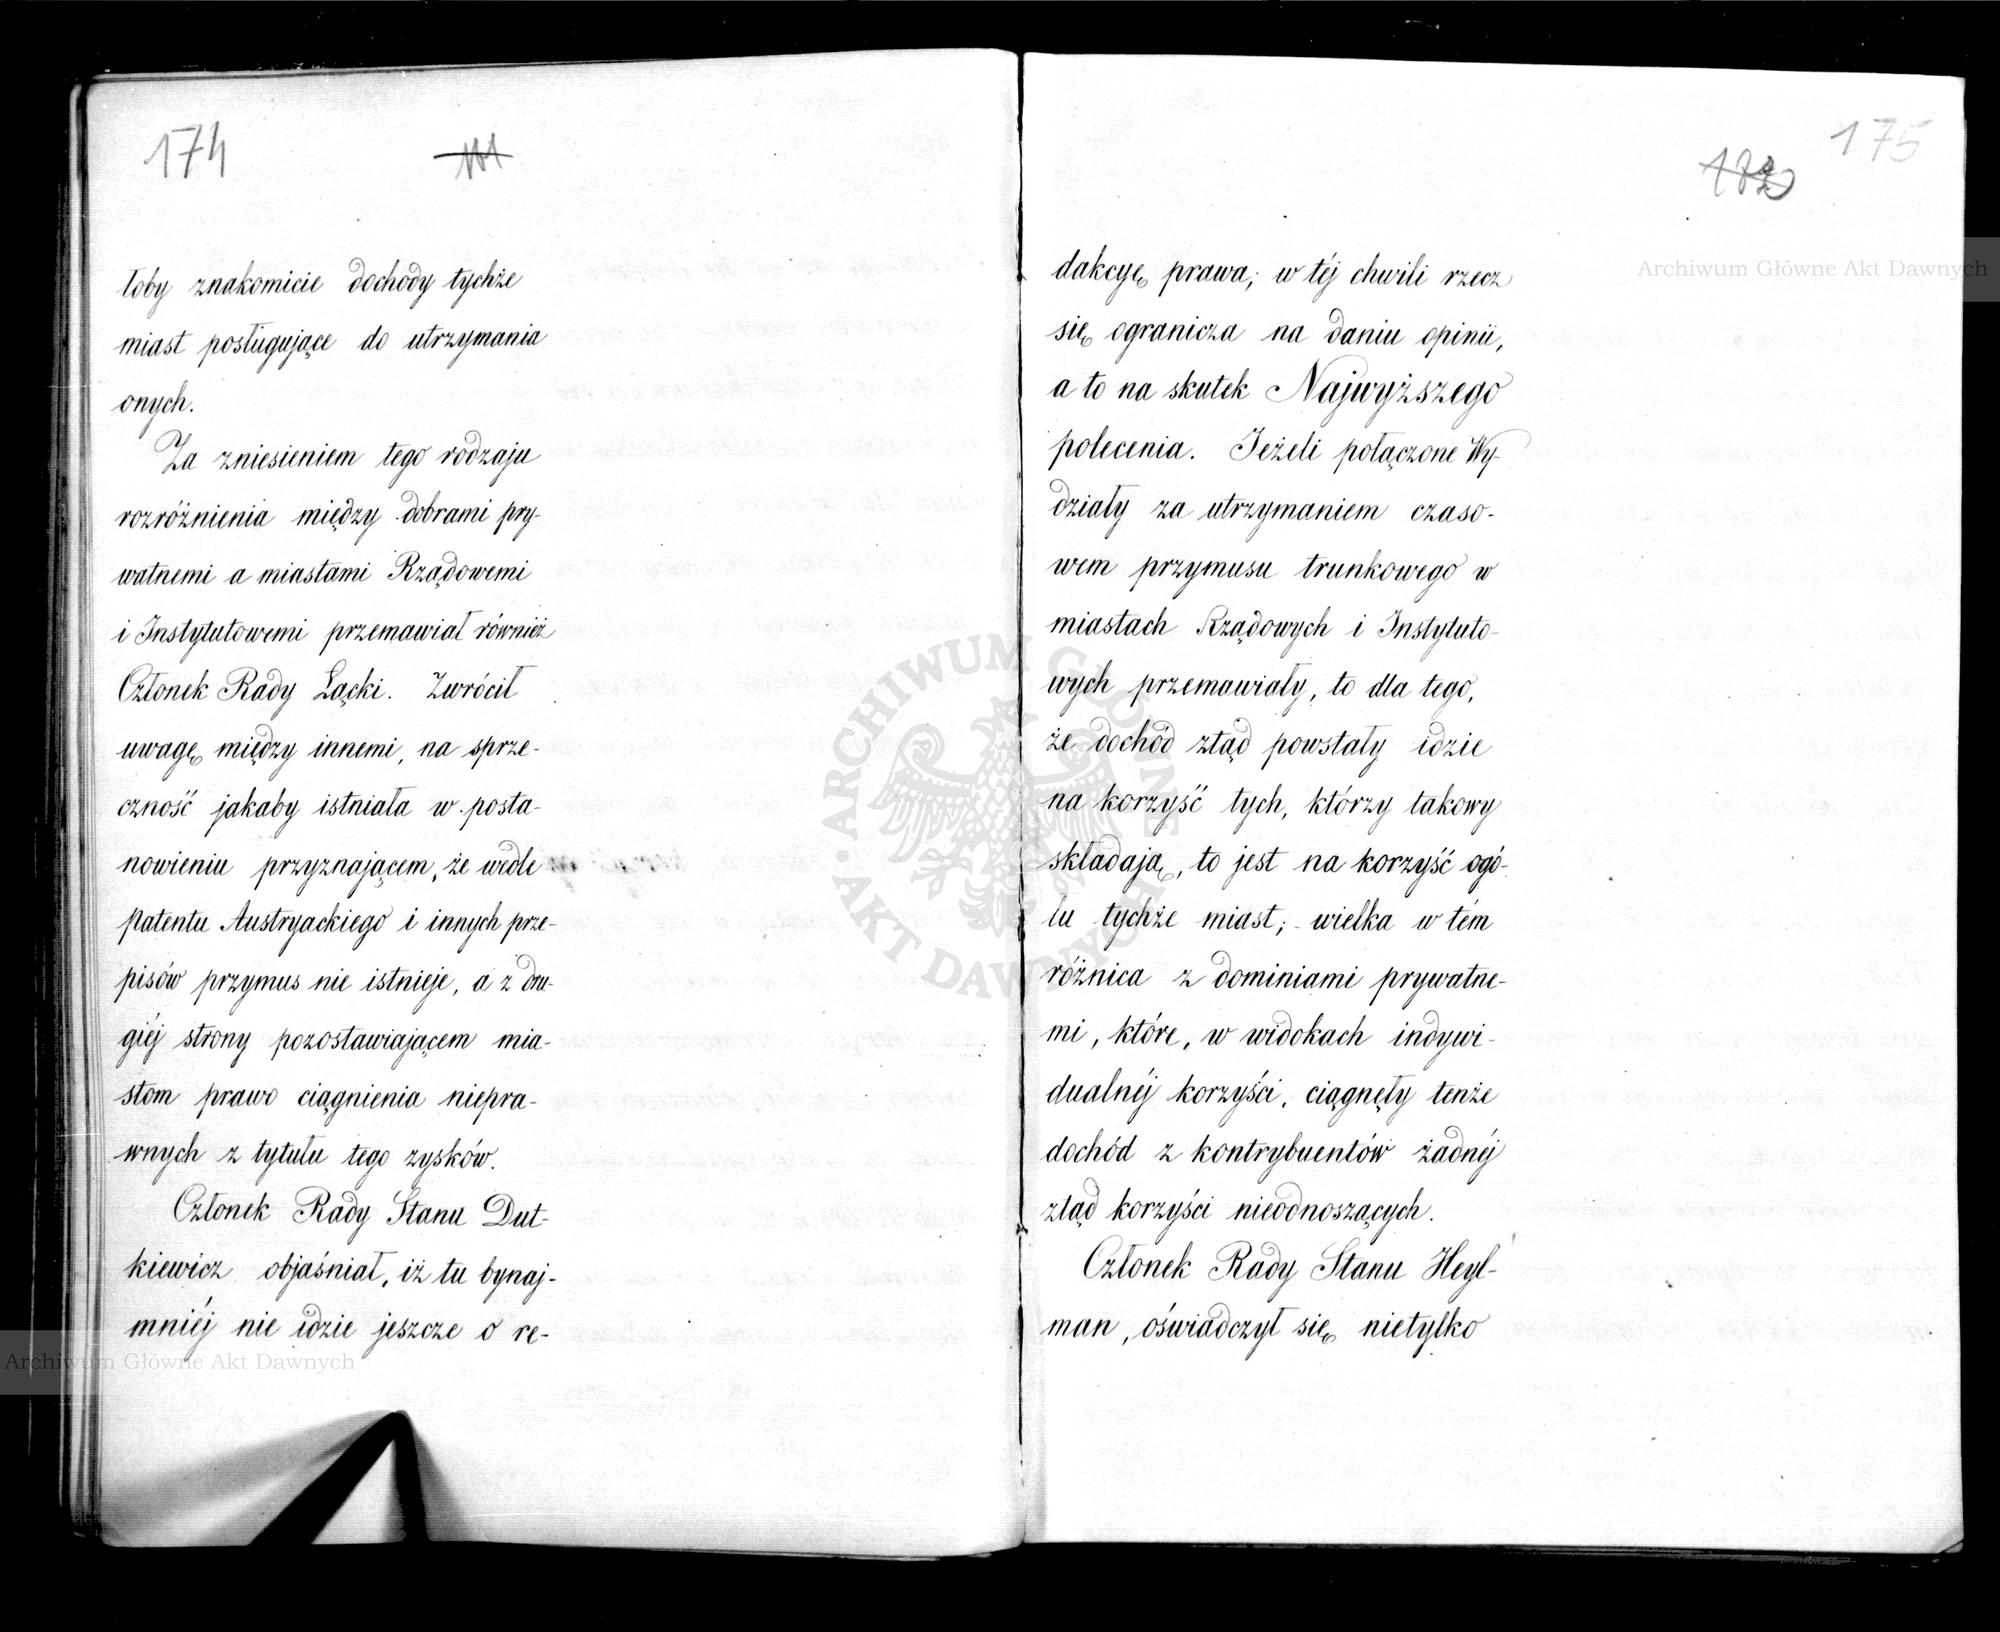 174
łoby znakomicie dochody tychże
miast posługujące do utrzymania
onych.
Za zniesieniem tego rodzaju
rozróżnienia między dobrami pry-
watnemi a miastami Rządowemi
i Instytutowemi przemawiał również
Członek Rady Łącki. Zwrócił
uwagę między innemi, na sprze-
czność jakaby istniała w posta-
nowieniu przyznającem, że wedle
patentu Austryackiego i innych prze-
pisów przymus nie istnieje, a z dru-
giéj strony pozostawiającem mia-
stom prawo ciągnienia niepra-
wnych z tytułu tego zysków.
Członek Rady Stanu Dut-
kiewicz objaśniał, iż tu bynaj-
mniéj nie idzie jeszcze o re-
175
dakcyę prawa; w téj chwili rzecz
się ogranicza na daniu opinii,
a to na skutek Najwyższego
polecenia. Jeżeli połączone Wy-
działy za utrzymaniem czaso-
wem przymusu trunkowego w
miastach Rządowych i Instytuto-
wych przemawiały, to dla tego,
że dochód ztąd powstały idzie
na korzyść tych, którzy takowy
składają, to jest na korzyść ogó-
łu tychże miast; wielka w tém
różnica z dominiami prywatne-
mi, które, w widokach indywi-
dualnéj korzyści, ciągnęły tenże
dochód z kontrybuentów żadnéj
ztąd korzyści nieodnoszących.
Członek Rady Stanu Heyl-
man, oświadczył się nietylko
Archiwum Główne Akt Dawnych
Archiwum Główne Akt Dawnych
ARCHIWUM GŁÓWNE AKT DAWNYCH